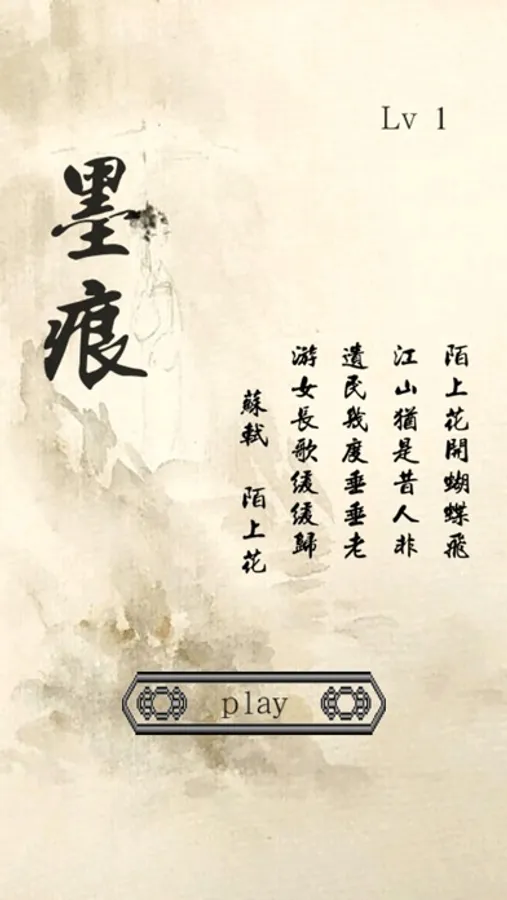 Lv 1
墨痕
陌上花開蝴蝶飛
江山猶是昔人非
遺民幾度垂垂老
游女長歌緩緩歸
蘇軾 陌上花
play